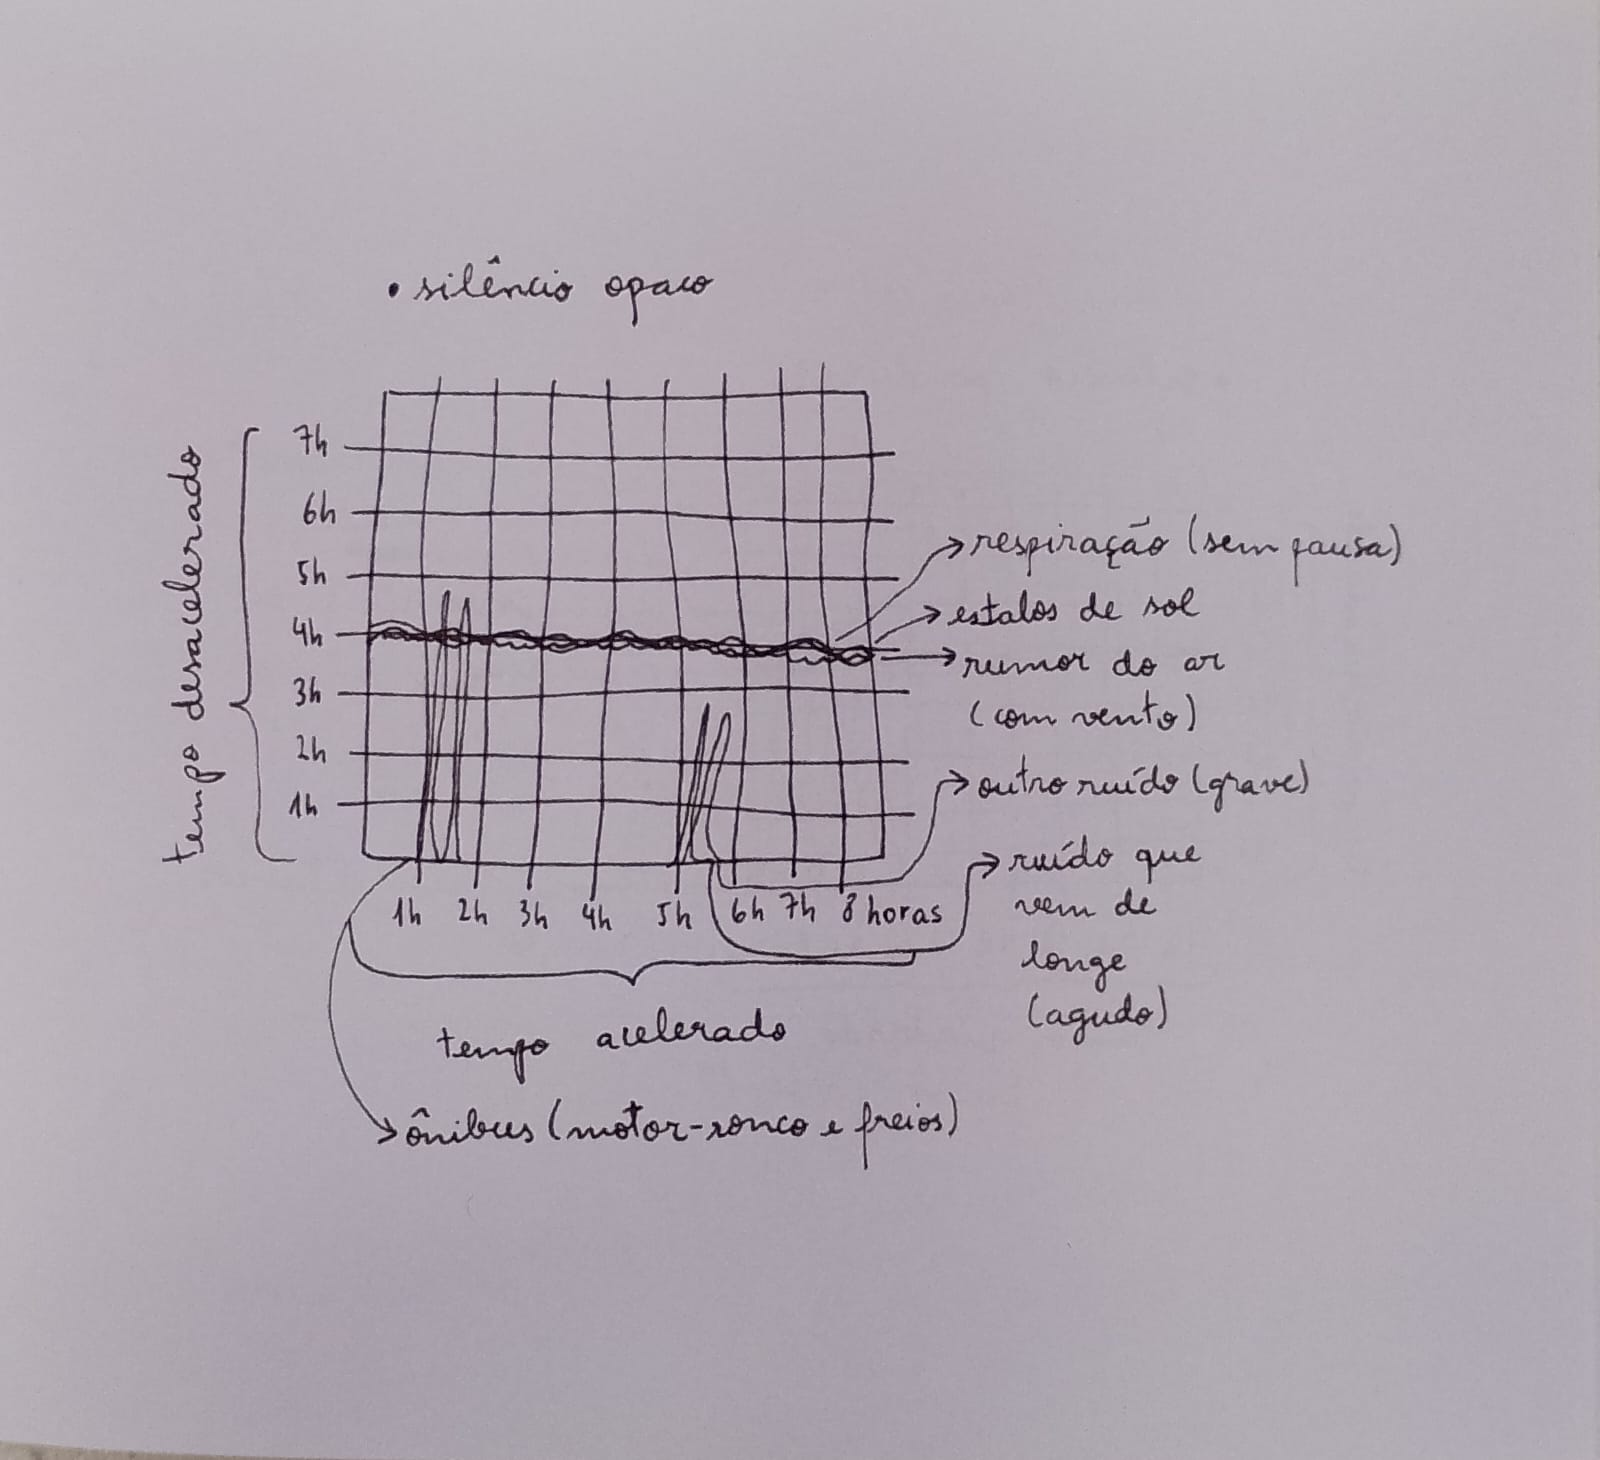 • silêncio opaco
tempo desacelerado
7h
6h
5h
4h
3h
2h
1h
respiração (sem pausa)
estalos de sol
rumor do ar
(com vento)
outro ruído (grave)
ruído que
vem de
longe
(agudo)
1h 2h 3h 4h 5h 6h 7h 8 horas
tempo acelerado
ônibus (motor-ronco e freios)